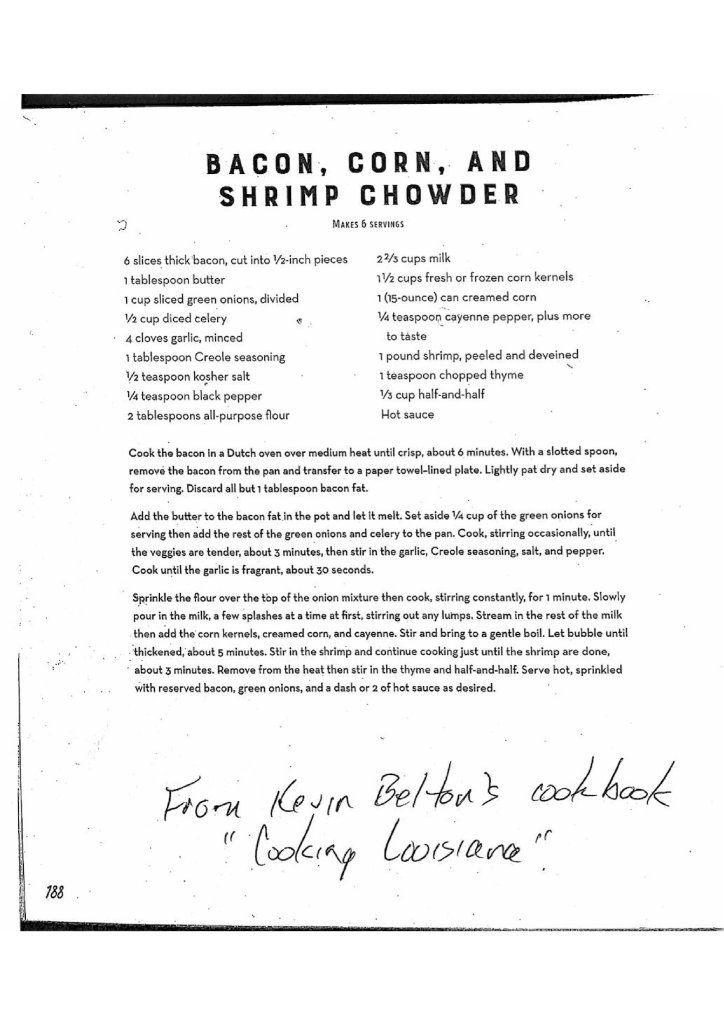 BACON, CORN, AND
SHRIMP CHOWDER
MAKES 6 SERVINGS
6 slices thick bacon, cut into 1/2-inch pieces
1 tablespoon butter
1 cup sliced green onions, divided
1/2 cup diced celery
4 cloves garlic, minced
1 tablespoon Creole seasoning
1/2 teaspoon kosher salt
1/4 teaspoon black pepper
2 tablespoons all-purpose flour
2 2/3 cups milk
1 1/2 cups fresh or frozen corn kernels
1 (15-ounce) can creamed corn
1/4 teaspoon cayenne pepper, plus more
to taste
1 pound shrimp, peeled and deveined
1 teaspoon chopped thyme
1/3 cup half-and-half
Hot sauce
Cook the bacon in a Dutch oven over medium heat until crisp, about 6 minutes. With a slotted spoon,
remove the bacon from the pan and transfer to a paper towel-lined plate. Lightly pat dry and set aside
for serving. Discard all but 1 tablespoon bacon fat.
Add the butter to the bacon fat in the pot and let it melt. Set aside 1/4 cup of the green onions for
serving then add the rest of the green onions and celery to the pan. Cook, stirring occasionally, until
the veggies are tender, about 3 minutes, then stir in the garlic, Creole seasoning, salt, and pepper.
Cook until the garlic is fragrant, about 30 seconds.
Sprinkle the flour over the top of the onion mixture then cook, stirring constantly, for 1 minute. Slowly
pour in the milk, a few splashes at a time at first, stirring out any lumps. Stream in the rest of the milk
then add the corn kernels, creamed corn, and cayenne. Stir and bring to a gentle boil. Let bubble until
thickened, about 5 minutes. Stir in the shrimp and continue cooking just until the shrimp are done,
about 3 minutes. Remove from the heat then stir in the thyme and half-and-half. Serve hot, sprinkled
with reserved bacon, green onions, and a dash or 2 of hot sauce as desired.
From Kevin Belton's cookbook
"Cooking Louisiana"
188